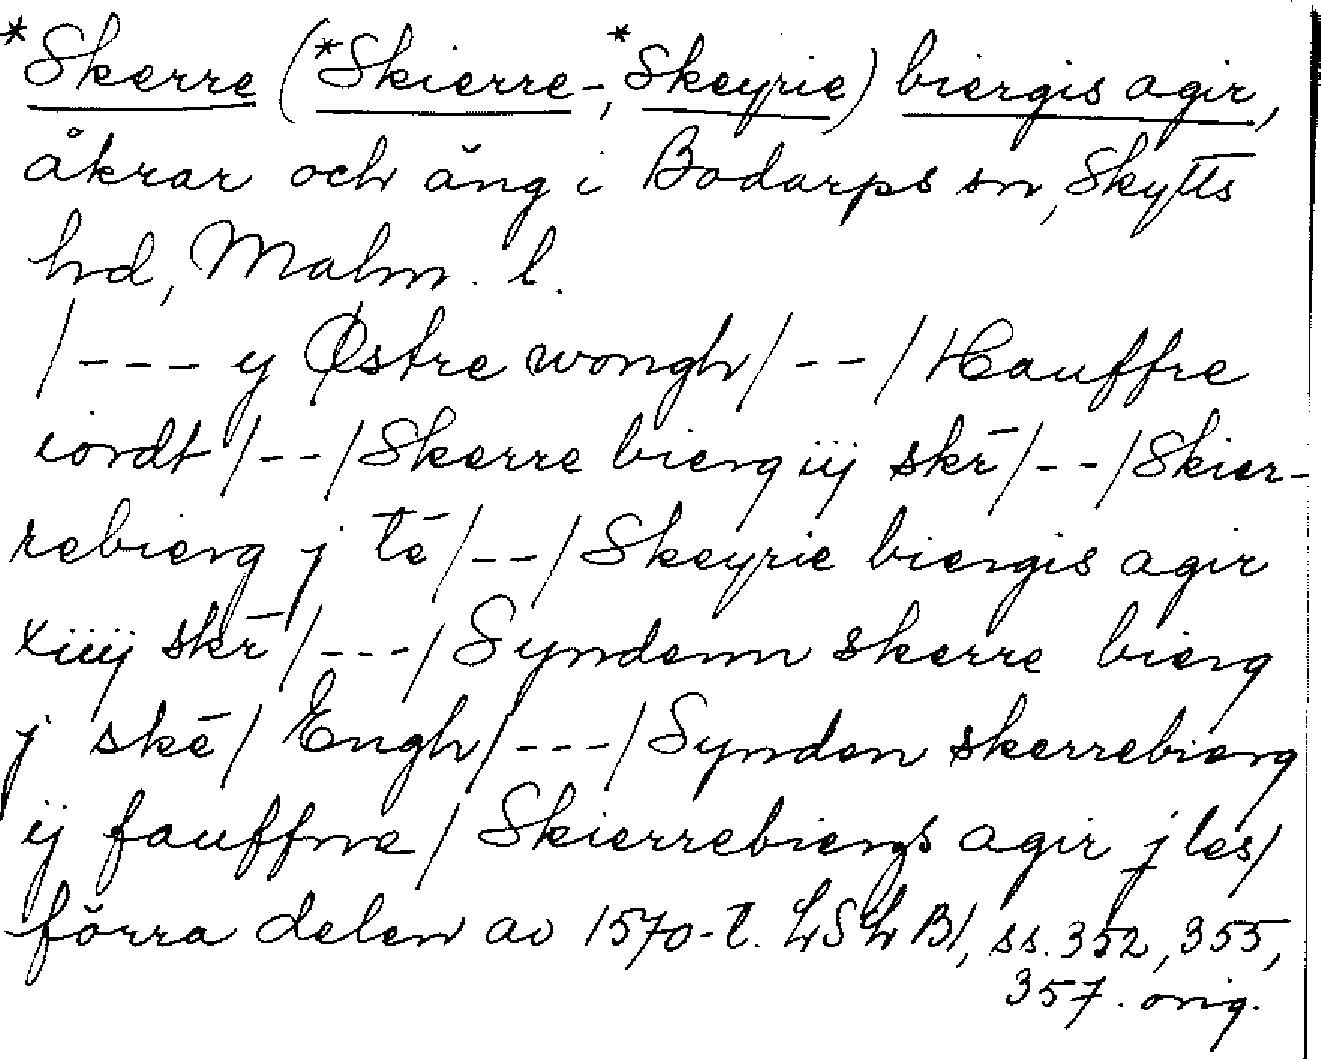 *Skerre (*Skierre-, *Skeyrie) biergis agir,
åkrar och äng i Bodarps sn, Skytts
hd, Malm. l.
/--- y Østre wongh/--/Hauffre
iordt/--/Skerre bierg iij skr̄/--/Skier-
rebierg j tē/--/Skeyrie biergis agir
xiiij skr̄/---/Synden skerre bierg
j skē/ Engh/---/Synden skerrebierg
ij fauffne/ Skierrebiergs agir j les/
förra delen av 1570-t. ss. 352, 355,
357. orig.